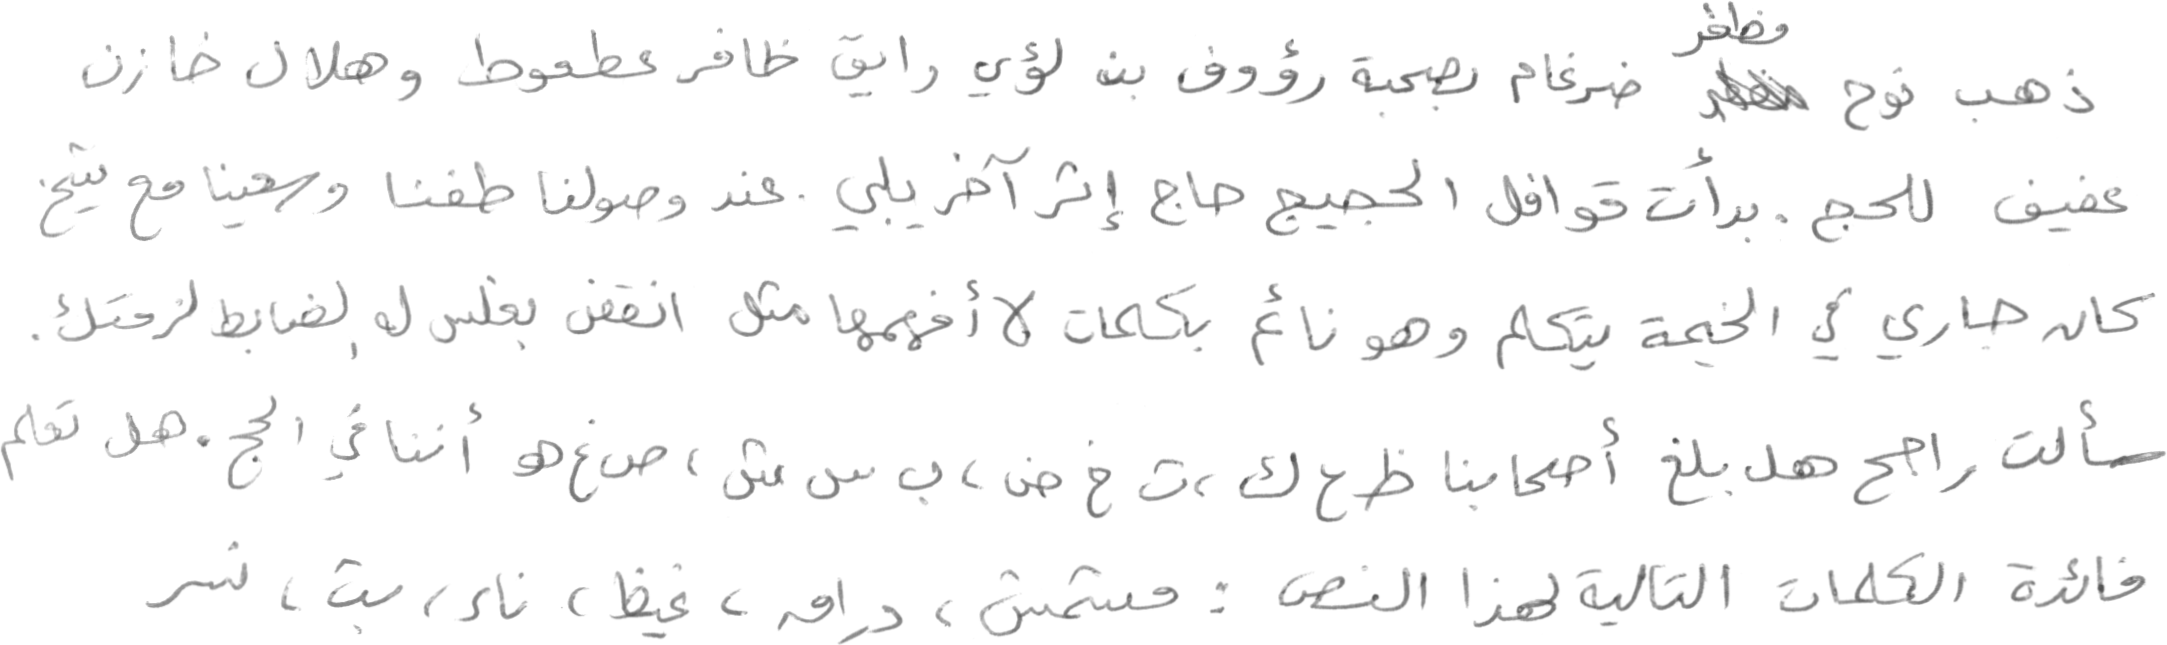 ذهب نوح مظفر ضرغام بصحبة رؤوف بن لؤي رايق ظافر عطعوط وهلال خازن
عفيف للحج. بدأت قوافل الحجيج حاج إثر آخر يلبي. عند وصولنا طفنا وسعينا مع شيخ
كان جاري في الخيمة يتكلم وهو نائم بكلمات لا أفهمها مثل انقض بغلس له لضابط لزحتك.
سألت راجح هل بلغ أصحابنا ظ ع ك، ت خ ض، ب س ش، ص غ هو أننا في الحج. هل تعلم
فائدة الكلمات التالية لهذا النص: مشمش، دراق، غيظ، ناء، بث، نسر